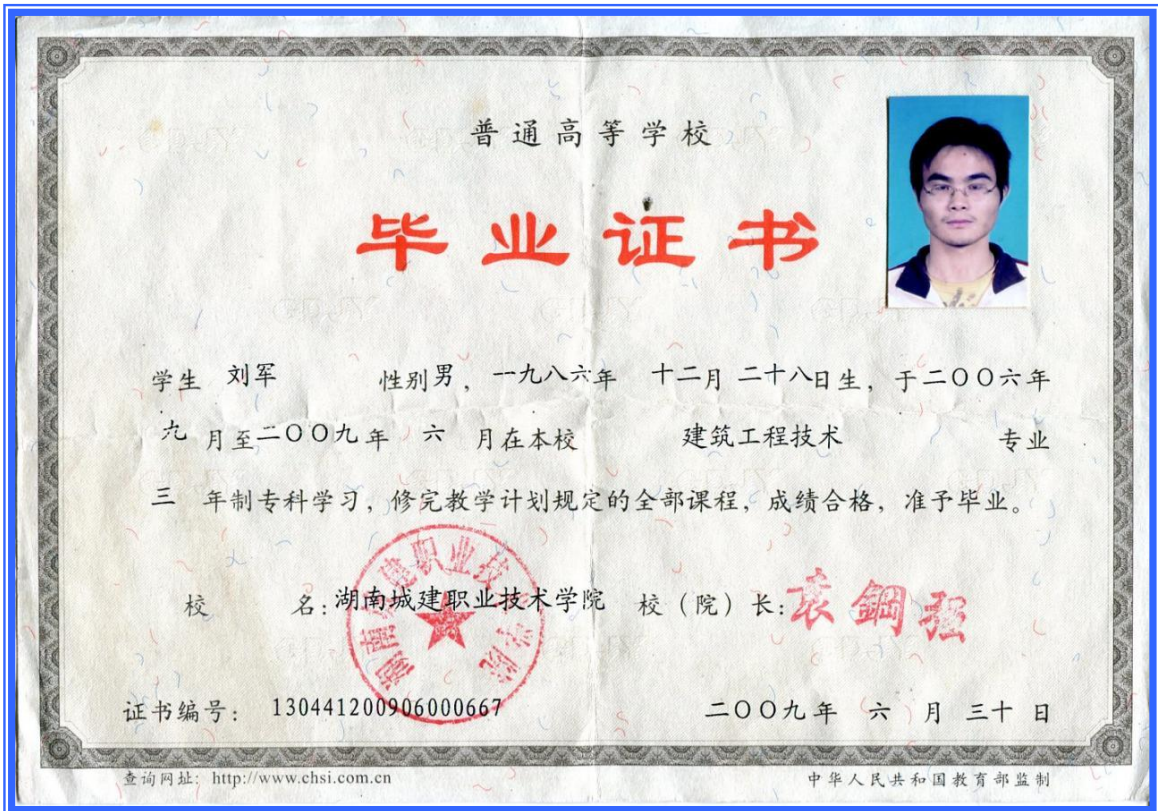 普通高等学校
毕业证书
学生 刘军 性别男，一九八六年 十二月二十八日生，于二〇〇六年
九 月至二〇〇九年 六 月在本校 建筑工程技术 专业
三 年制专科学习，修完教学计划规定的全部课程，成绩合格，准予毕业。
校 名：湖南城建职业技术学院 校（院）长：袁鋼强
湖南城建职业技术学院
证书编号： 130441200906000667 二〇〇九年 六 月 三十 日
查询网址：http://www.chsi.com.cn 中华人民共和国教育部监制